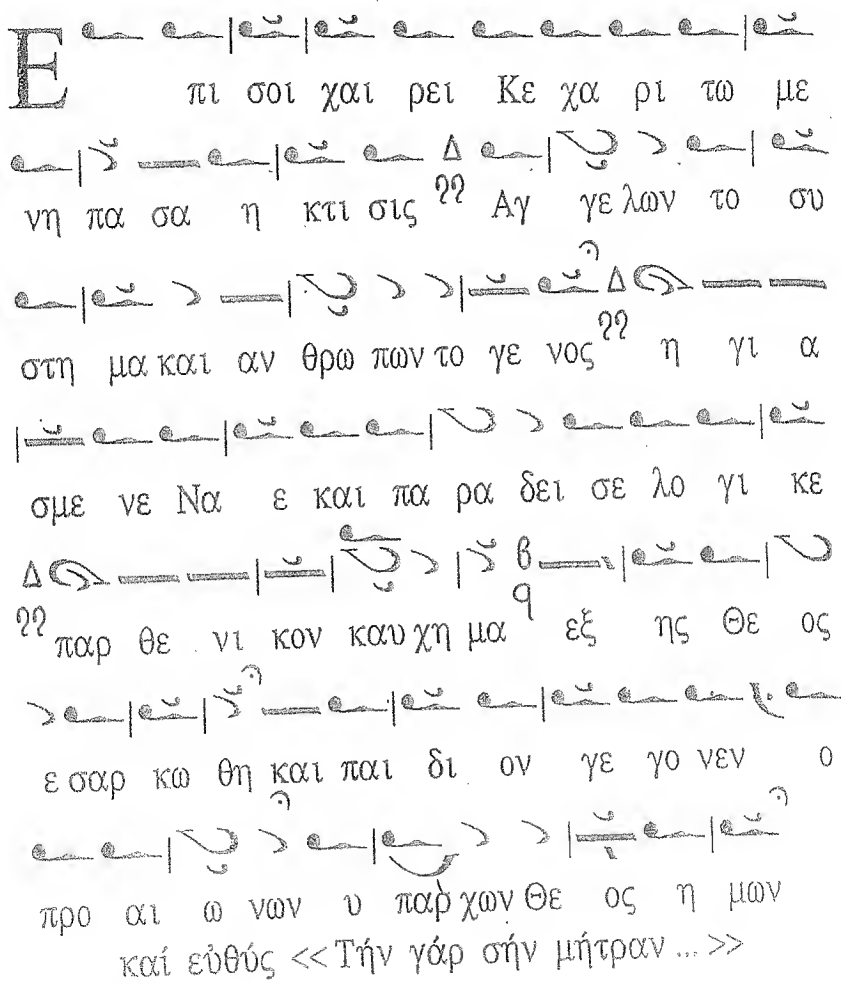 Ε πι σοι χαι ρει Κε χα ρι τω με
νη πα σα η κτι σις Αγ γε λων το συ
στη μα και αν θρω πων το γε νος η γι α
σμε νε Να ε και πα ρα δει σε λο γι κε
παρ θε νι κον καυ χη μα εξ ης Θε ος
ε σαρ κω θη και παι δι ον γε γο νεν ο
προ αι ω νων υ παρ χων Θε ος η μων
καί εὐθύς <<Τήν γάρ σήν μήτραν ... >>